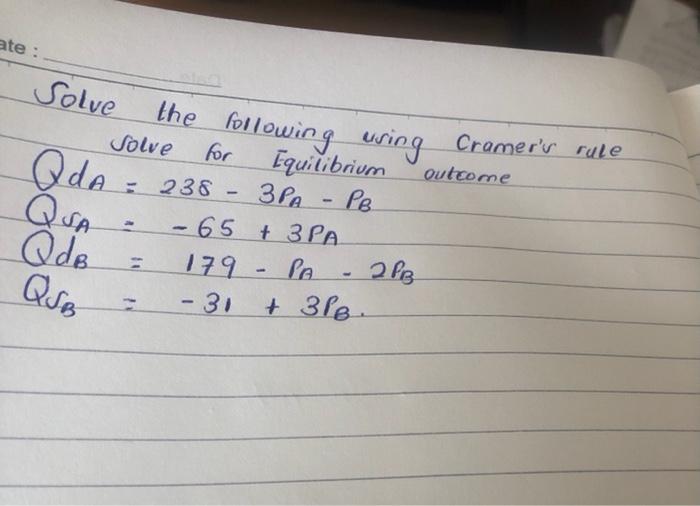 ate :
Solve the following using Cramer's rule
solve for Equilibrium outcome
QdA = 238 - 3PA - PB
QSA = - 65 + 3PA
QdB = 179 - PA - 2PB
QSB = - 31 + 3PB.